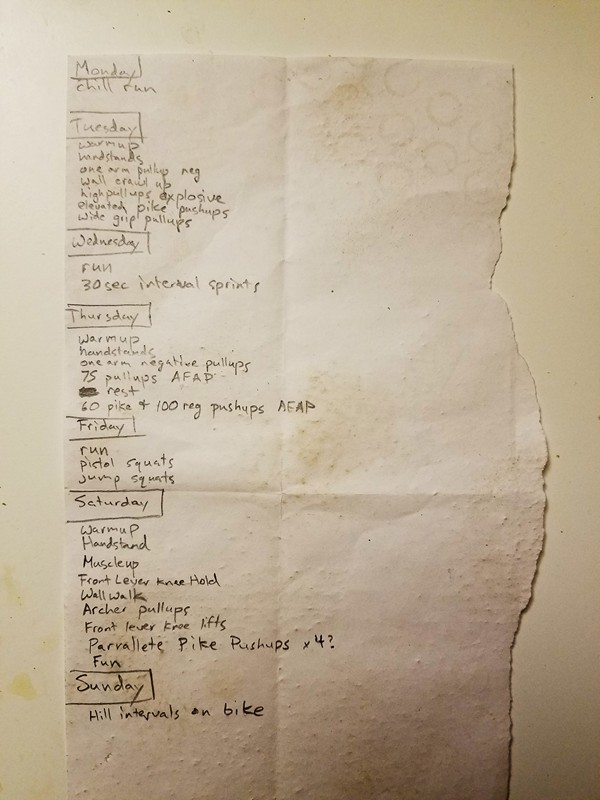 Monday
chill run
Tuesday
warmup
handstands
one arm pullup neg
wall crawl up
high pullups explosive
elevated pike pushups
wide grip pullups
Wednesday
run
30 sec interval sprints
Thursday
warmup
handstands
one arm negative pullups
75 pullups AFAP
rest
60 pike + 100 reg pushups AFAP
Friday
run
pistol squats
Jump squats
Saturday
Warmup
Handstand
Muscleup
Front Lever Knee Hold
Wall walk
Archer pullups
Front lever knee lifts
Parrallete Pike Pushups x 4?
Fun
Sunday
Hill intervals on bike